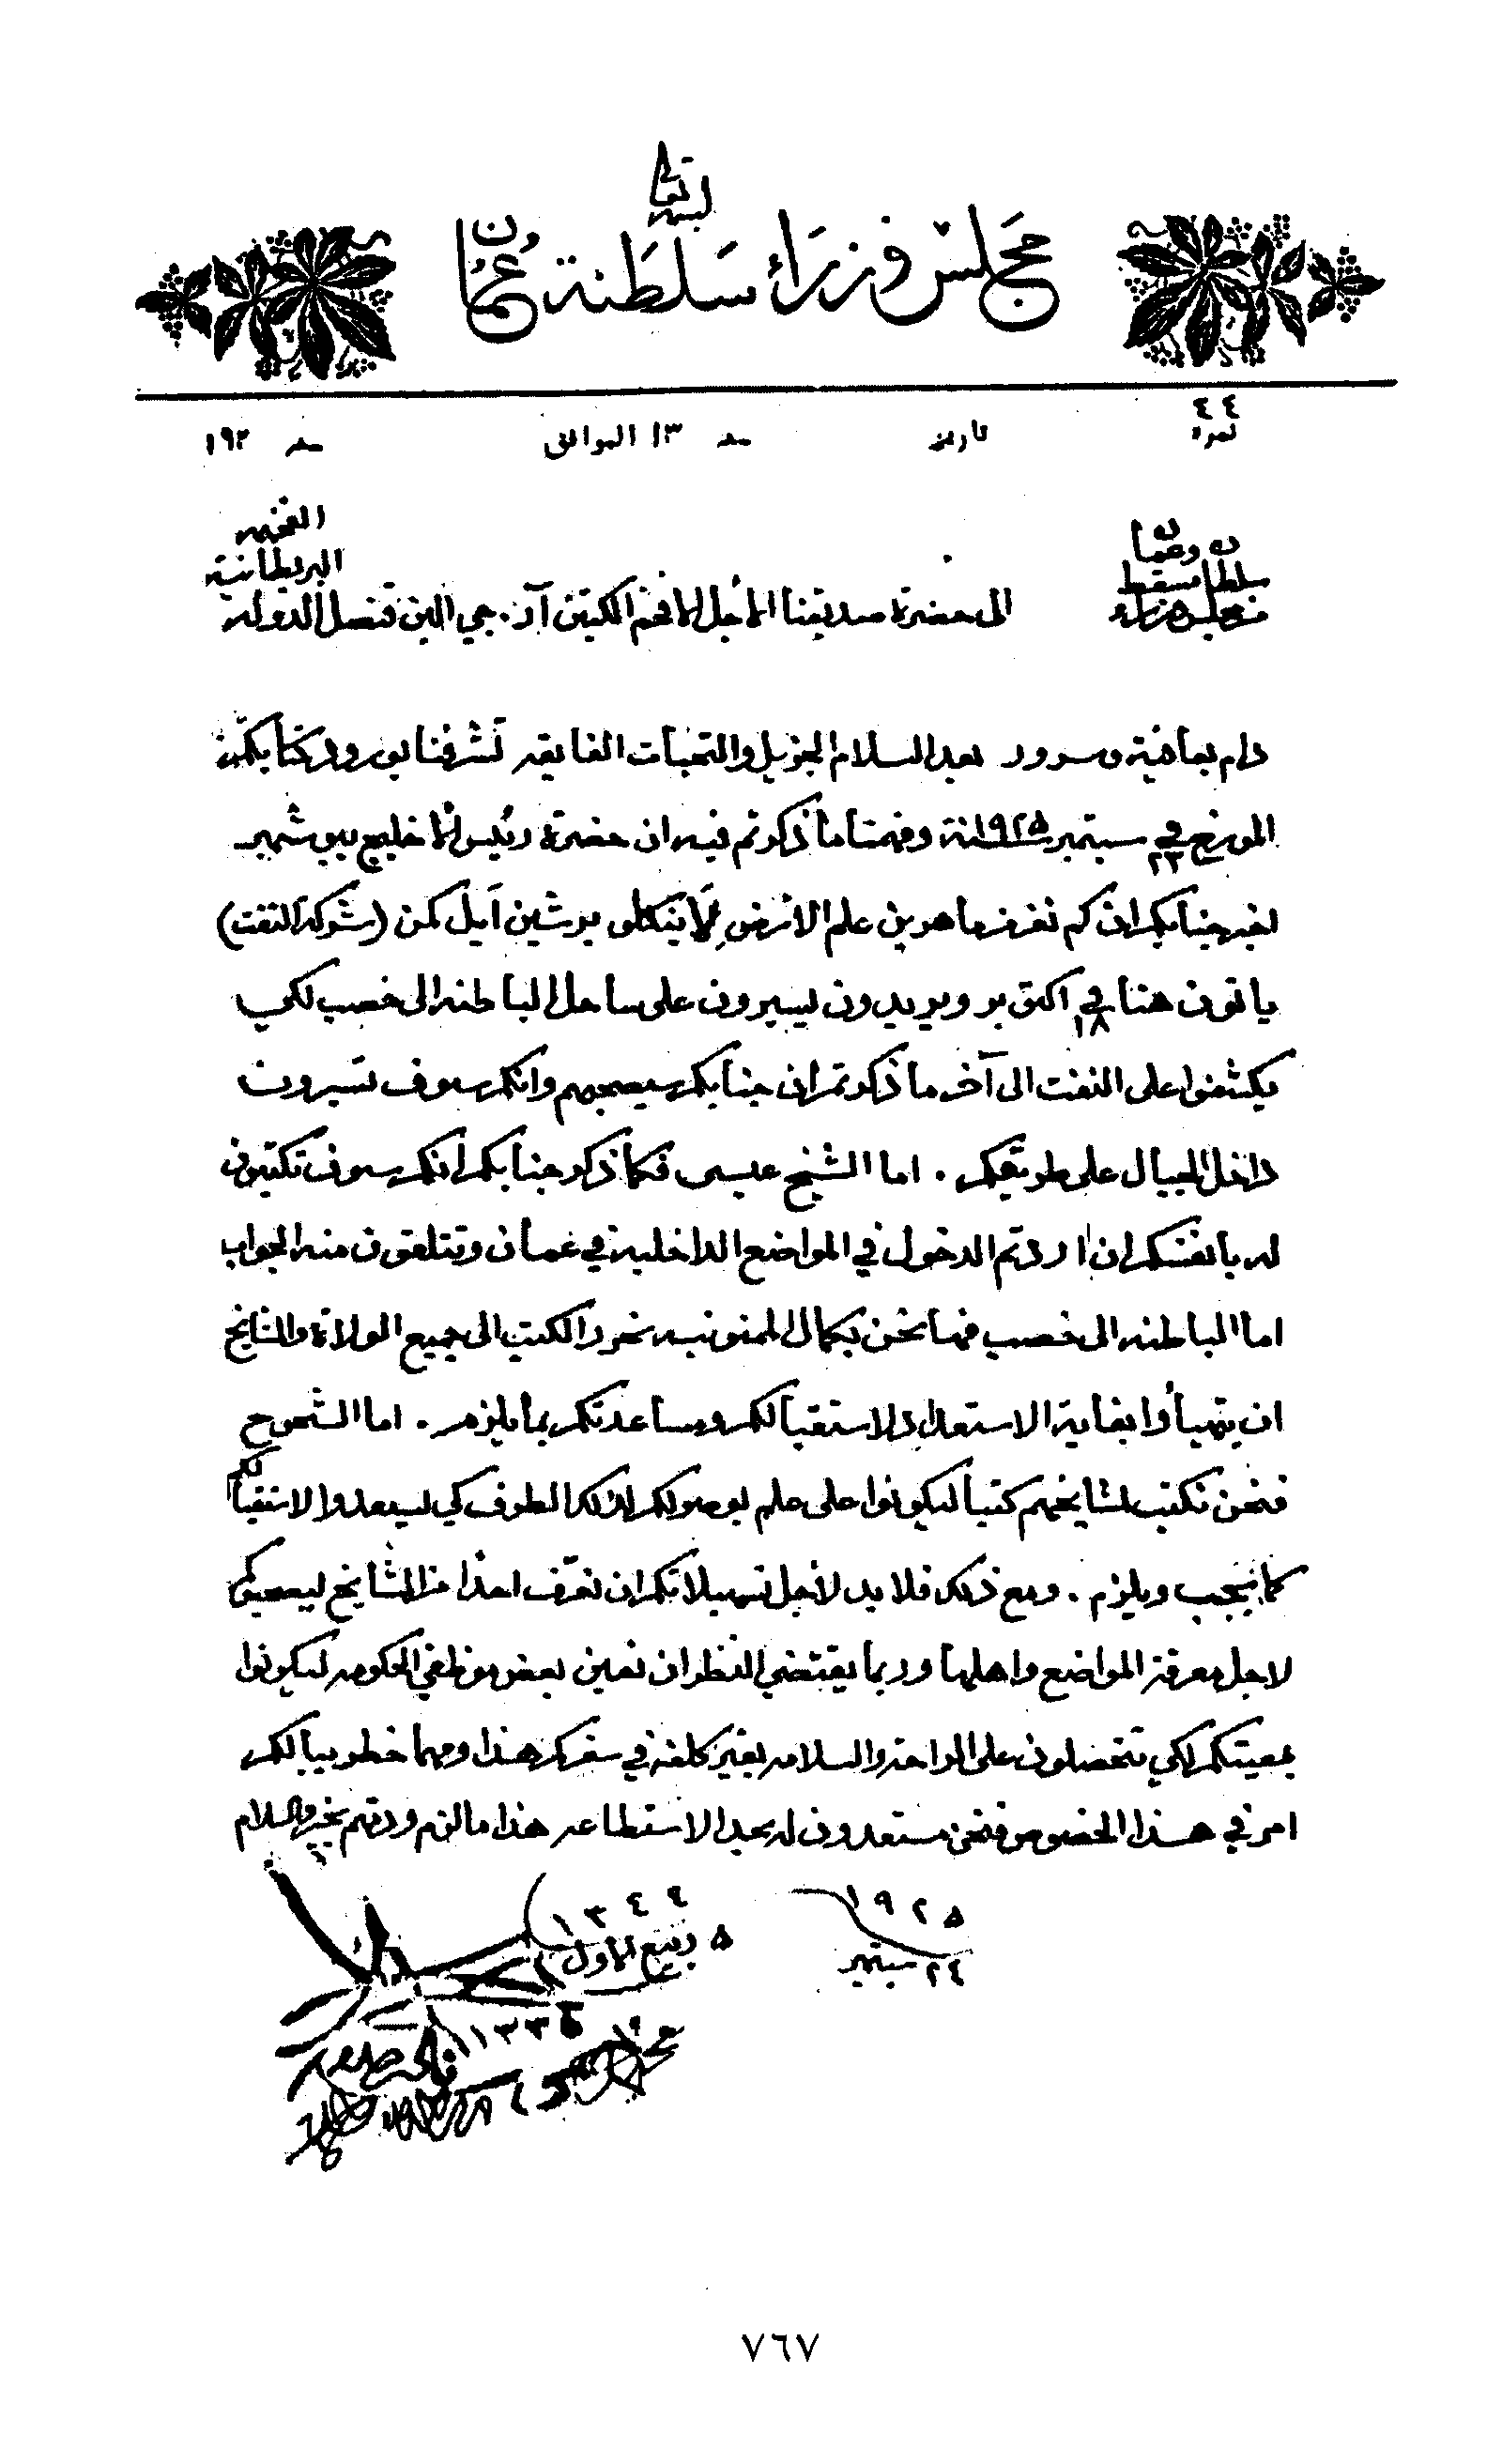 بسمه تعالى
مجلس وزراء سلطنة عمان
نمرة ٤٤ تاريخ سنه ١٣ الموافق سنه ١٩٢
من مجلس وزراء سلطان مسقط وعمان الى حضرة صديقنا الأجل الأفخم الكبتن آر. جي الين قنصل الدولة البريطانية الفخيمه
دام بعافية وسرور بعد السلام الجزيل والتحيات الفايقه تشرفنا بورود كتابكم
المورخ في ٢٣ سبتمبر سنة ١٩٢٥ وفهمنا ما ذكرتم فيه ان حضرة رئيس الخليج ببوشهر
اخبر جنابكم ان كم نفر من ماهرين علم الأرض لأينكلو برشين آيل كمن (شركة النفت)
ياتون هنا في ١٨ اكتوبر ويريدون يسيرون على ساحل الباطنه الى خصب لكي
يكشفوا على النفت الى آخر ما ذكرتم ان جنابكم سيصحبهم وانكم سوف تسيرون
داخل الجبال على طريقكم. اما الشيخ عيسى فكما ذكر جنابكم انكم سوف تكتبون
له بانفسكم ان اردتم الدخول في المواضع الداخلية في عمان وتتلقون منه الجواب
اما الباطنه الى خصب فها نحن بكمال الممنونيه نحرر الكتب الى جميع الولاة والمشايخ
ان يتهيأوا بغاية الاستعداد لاستقبالكم ومساعدتكم بما يلزم. اما الشحوح
فنحن نكتب لمشايخهم كتبا ليكونوا على علم بوصولكم لذلك الطرف كي يستعدوا لاستقبالكم
كما يجب ويلزم. ومع ذلك فلا بد لأجل تسهيلاتكم ان نعرف احدا من المشايخ ليصحبكم
لاجل معرفة المواضع واهلها وربما يقتضي النظر ان نعين بعض موظفي الحكومه ليكونوا
بمعيتكم لكي تتحصلون على الراحة والسلامه بغير كلفة في سفركم هذا ومهما خطر ببالكم
امر في هذا الخصوص فنحن مستعدون له بحد الاستطاعه هذا ما لزم ودمتم بخير والسلام
١٩٢٥
٢٤ سبتمبر
١٣٤٤
٥ ربيع الأول
١٣٣٤
٧٦٧